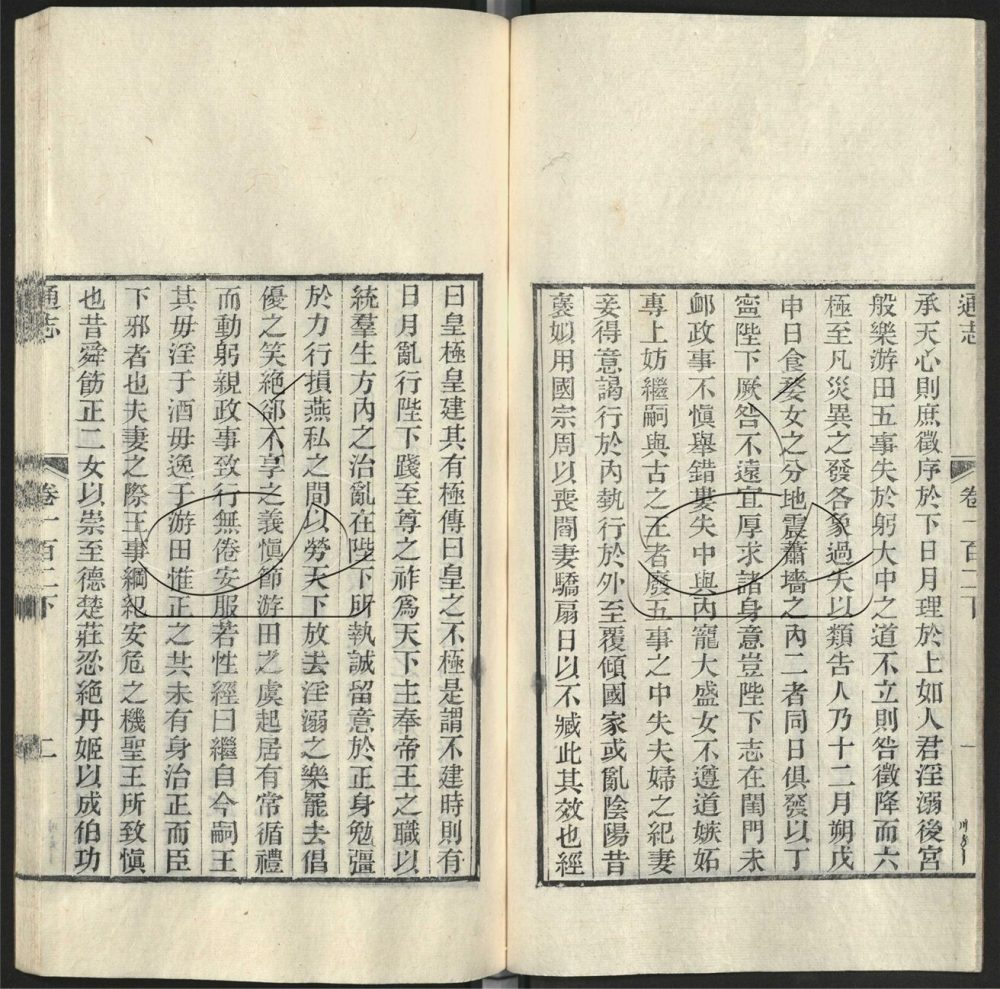 通志
卷一百二下
一
承天心則庶徵序於下日月理於上如人君淫溺後宮
般樂游田五事失於躬大中之道不立則咎徵降而六
極至凡災異之發各象過失以類告人乃十二月朔戊
申日食婺女之分地震蕭墻之內二者同日俱發以丁
寧陛下厥咎不遠宜厚求諸身意豈陛下志在閨門未
卹政事不愼舉錯婁失中與內寵大盛女不遵道嫉妬
專上妨繼嗣與古之王者廢五事之中失夫婦之紀妻
妾得意謁行於內執行於外至覆傾國家或亂陰陽昔
襃姒用國宗周以喪閻妻驕扇日以不臧此其效也經
曰皇極皇建其有極傳曰皇之不極是謂不建時則有
日月亂行陛下踐至尊之祚爲天下主奉帝王之職以
統羣生方內之治亂在陛下所執誠留意於正身勉彊
於力行損燕私之閒以勞天下放去淫溺之樂罷去倡
優之笑絕卻不享之義愼節游田之虞起居有常循禮
而動躬親政事致行無倦安服若性經曰繼自今嗣王
其毋淫于酒毋逸于游田惟正之共未有身治正而臣
下邪者也夫妻之際王事綱紀安危之機聖王所致愼
也昔舜飭正二女以崇至德楚莊忍絕丹姬以成伯功
通志
卷一百二下
二